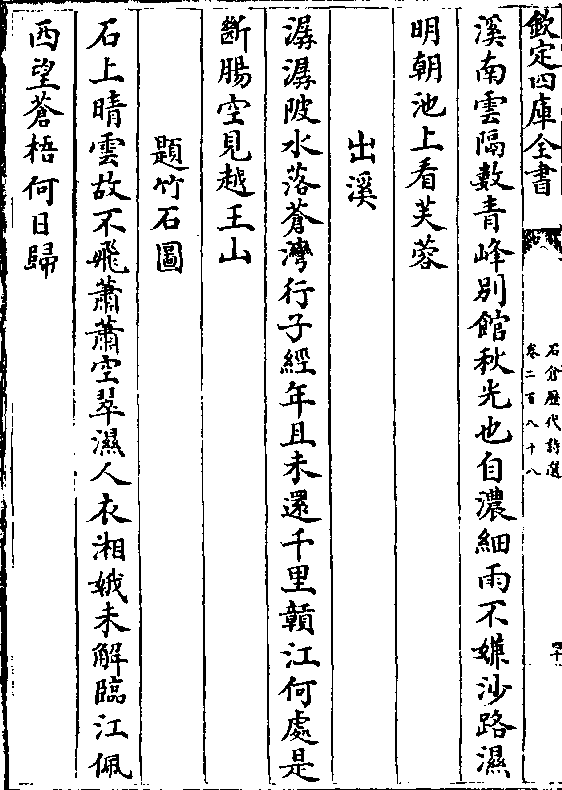 欽定四庫全書
石倉歷代詩選
卷二百八十八
四十
溪南雲隔數青峰別館秋光也自濃細雨不嫌沙路濕
明朝池上看芙蓉
出溪
潺潺陂水落蒼灣行子經年且未還千里贛江何處是
斷腸空見越王山
題竹石圖
石上晴雲故不飛蕭蕭空翠濕人衣湘娥未解臨江佩
西望蒼梧何日歸